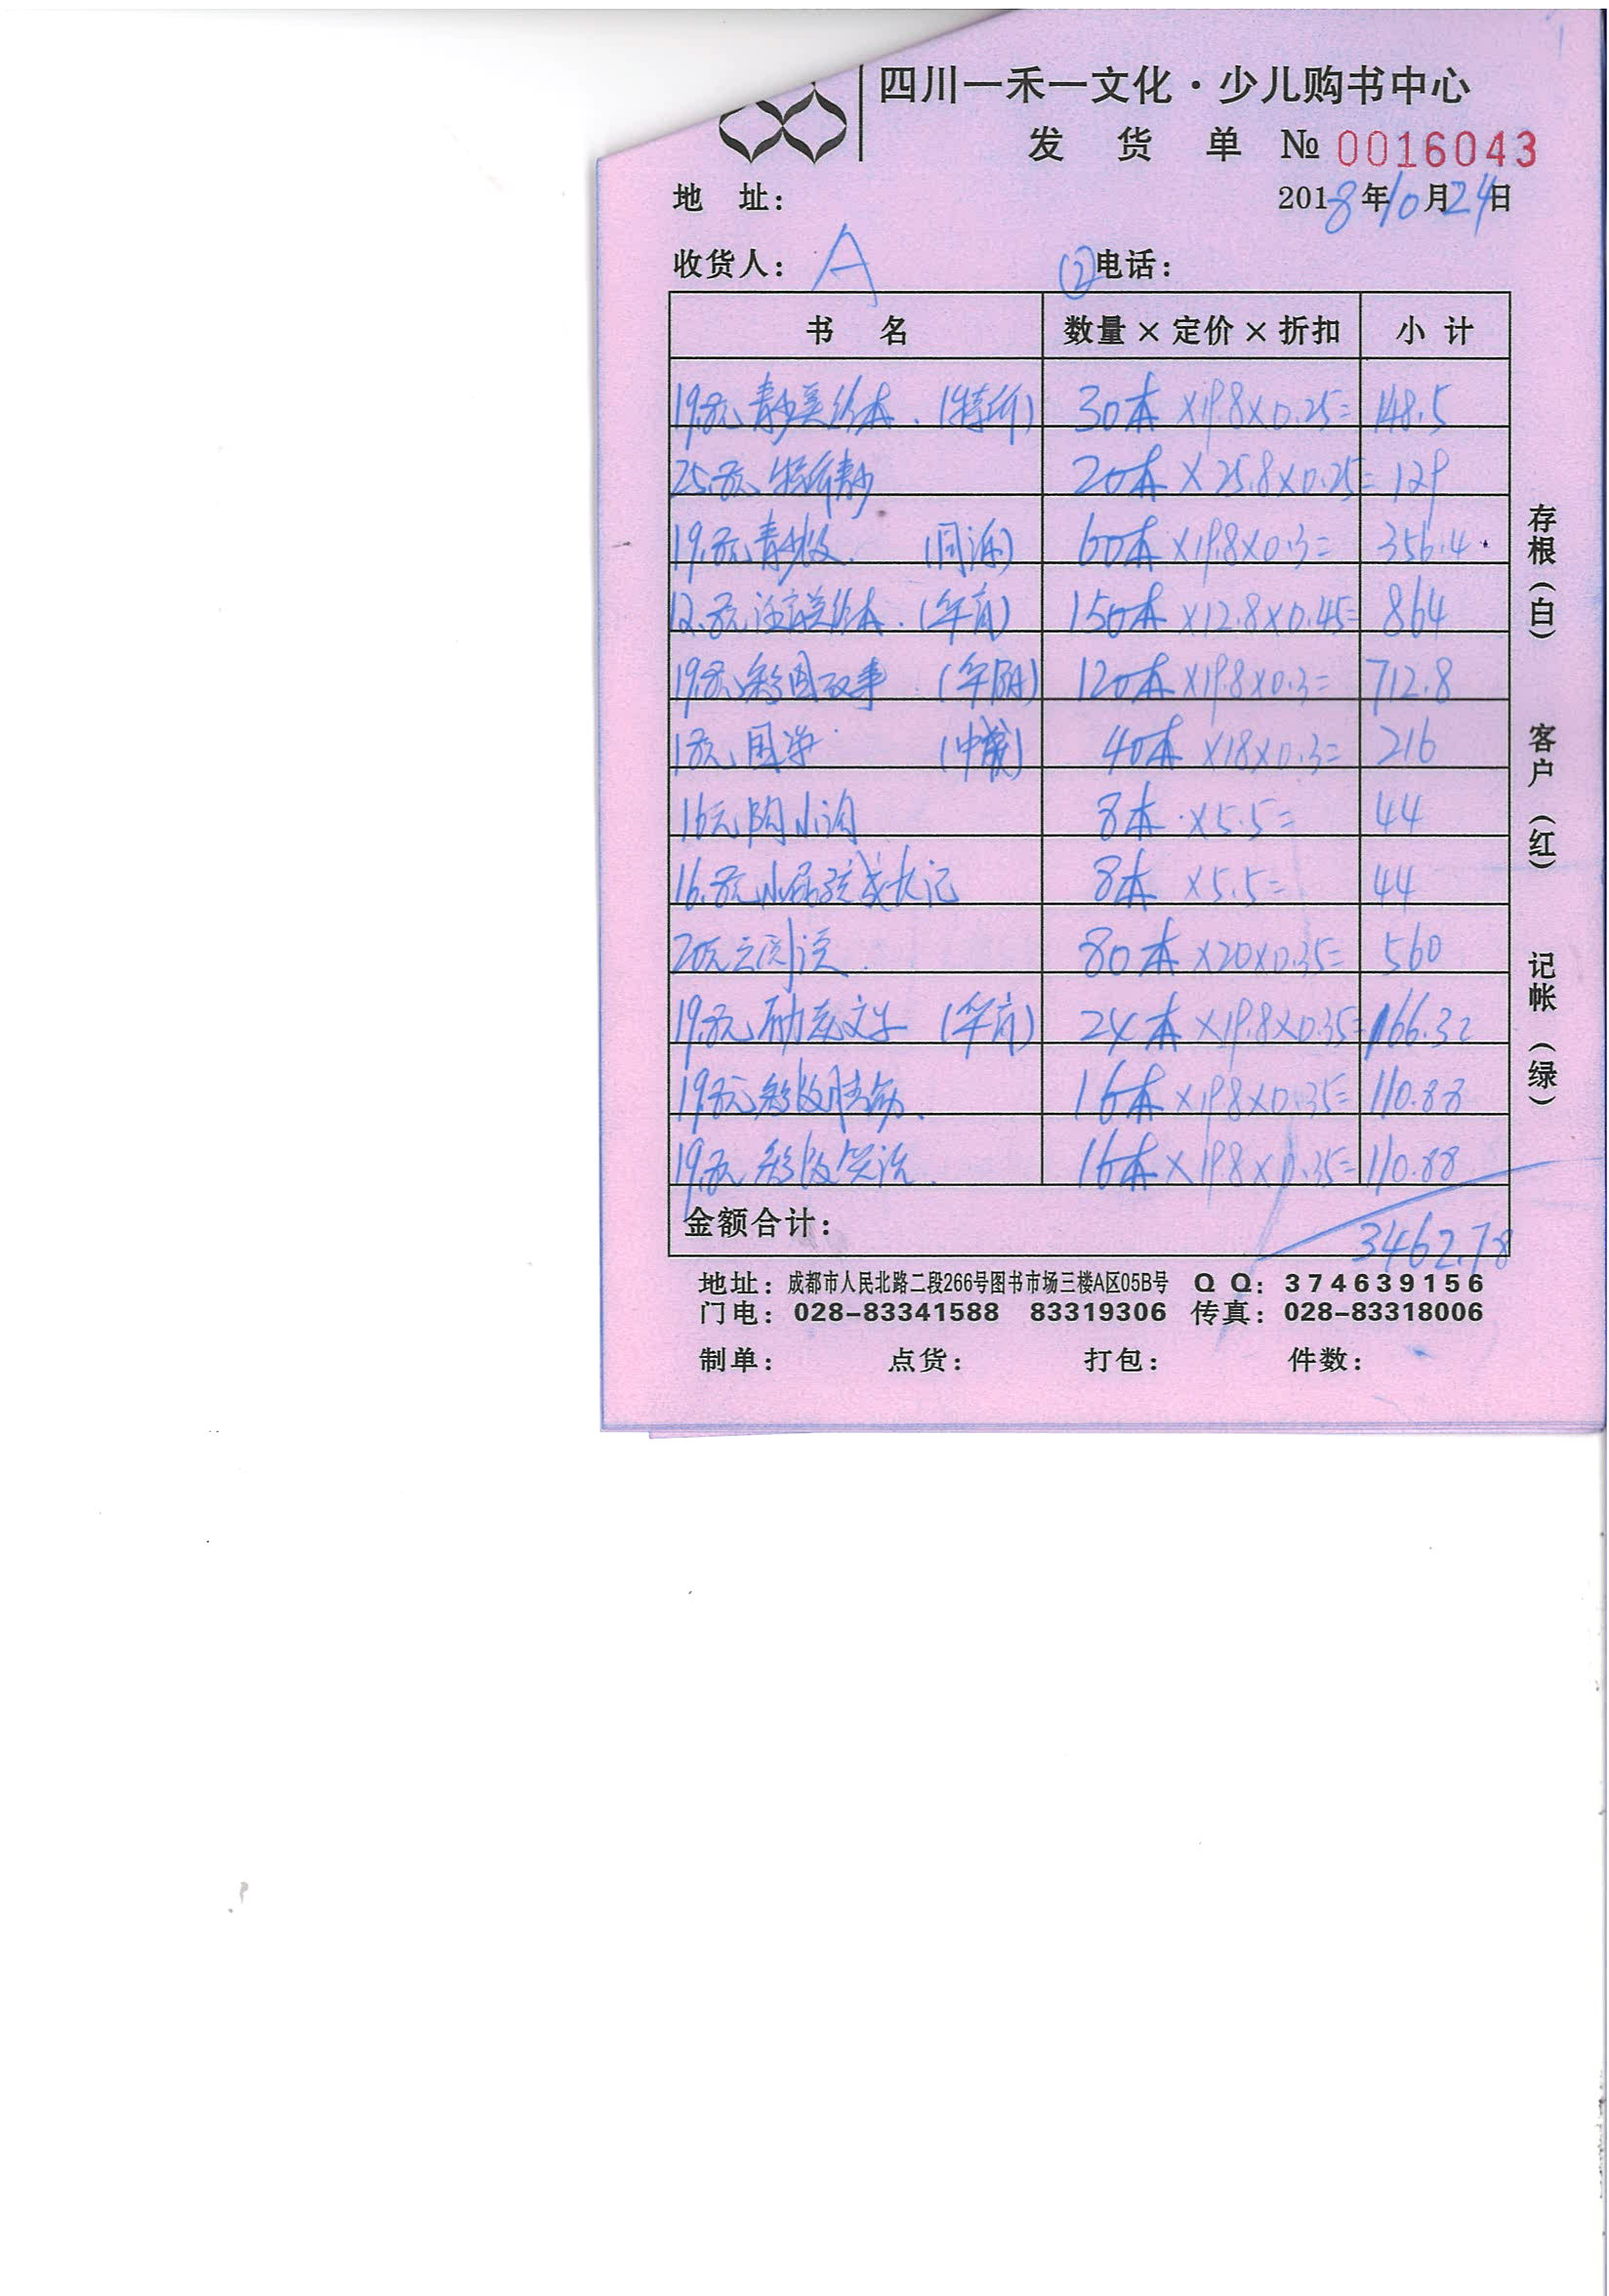 四川一禾一文化·少儿购书中心
发 货 单 № 0016043
地 址： 2018年10月24日
收货人： A ②电话：
书 名 数量×定价×折扣 小 计
19.8元青少美绘本.(特价) 30本×19.8×0.25= 148.5
25.8元特价青少 20本×25.8×0.25= 129
19.8元青少版. 60本×19.8×0.3= 356.4
12.8元注音美绘本.(华育) 150本×12.8×0.45= 864
19.8元彩图故事.(华阳) 120本×19.8×0.3= 712.8
18元国学 40本×18×0.3= 216
16元陶小淘 8本×5.5= 44
16.8元小屁孩成长记 8本×5.5= 44
20元云阅读. 80本×20×0.35= 560
19.8元励志文学(华育) 24本×19.8×0.35= 166.32
19.8元 16本×19.8×0.35= 110.88
19.8元 16本×19.8×0.35= 110.88
金额合计： 3462.78
地址：成都市人民北路二段266号图书市场三楼A区05B号 QQ：374639156
门电：028-83341588 83319306 传真：028-83318006
制单： 点货： 打包： 件数：
存根（白） 客户（红） 记帐（绿）